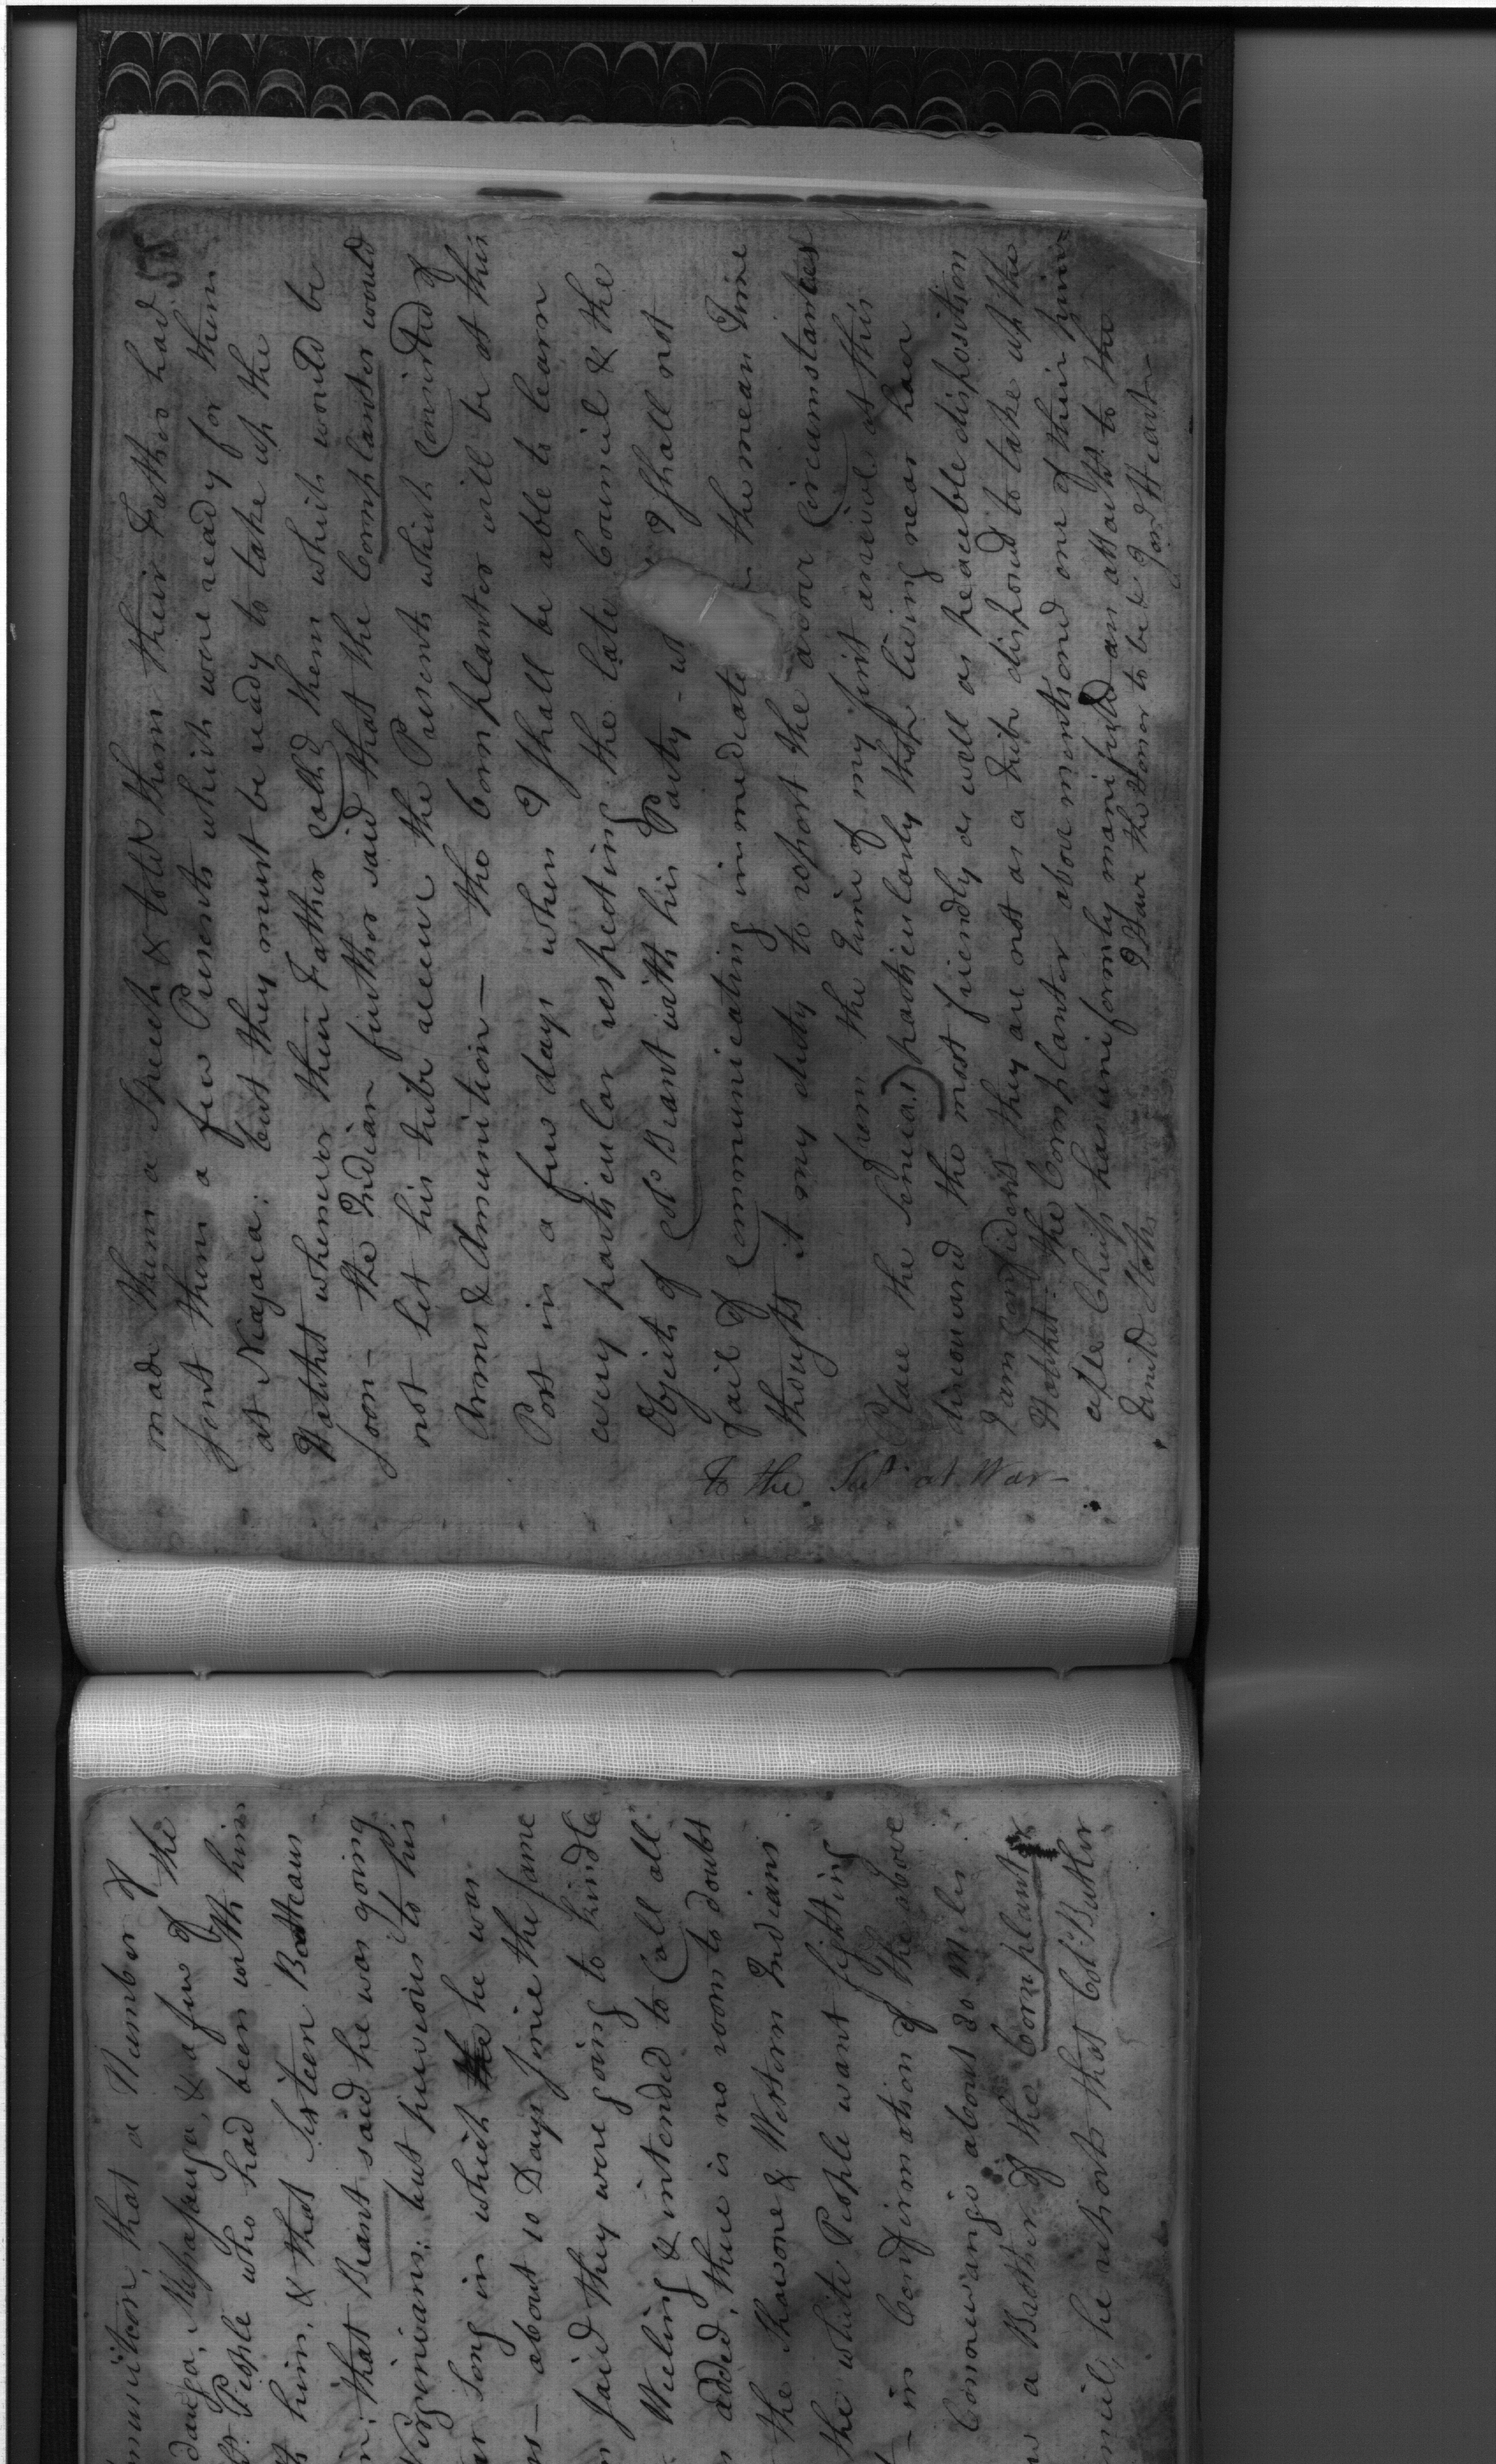 munition, that a Number of
the
daugo, Messasauga, & a few of
People who had been with him
him, & that Sixteen Batteaus
that Brant said he was going
Virginians; but previous to his
War Song in which the he was
about 10 Days since the same
said they were going to kindle
& intended to Call all
added, there is no room to doubt
the Shawone & Western Indians
the white People want fighting
in Confirmation of the above
Conowango about 80 Miles
a Brother of the Cornplant
he reports that Col: Butler
58
made them a Speech & told them their Father had
sent them a few Presents which were ready for them
at Niagara: but they must be ready to take up the
Hatchet whenever their Father Call'd them which would be
soon - the Indian further said that the Cornplanter would
not let his tribe accept the Presents which Consisted of
Arms & Amunition — the Cornplanter will be at this
Post in a few days when I shall be able to learn
every particular respecting the late Council & the
Object of Col. Brant with his Party - I shall not
fail of Communicating immediate the mean Time
thought it my duty to report the above Circumstances
from the time of my first arrival at this
Place the Senica's) particularly those living near have
discovered the most friendly as well as peaceble disposition
I am Confident they are not as a tribe disposed to take up the
Hatchet: the Cornplanter above mentioned one of their principle
Chiefs has uniformly manifested an attacht. to the
United States
I Have the Honor to be &c Jonn Heart
To the Secy. at War —